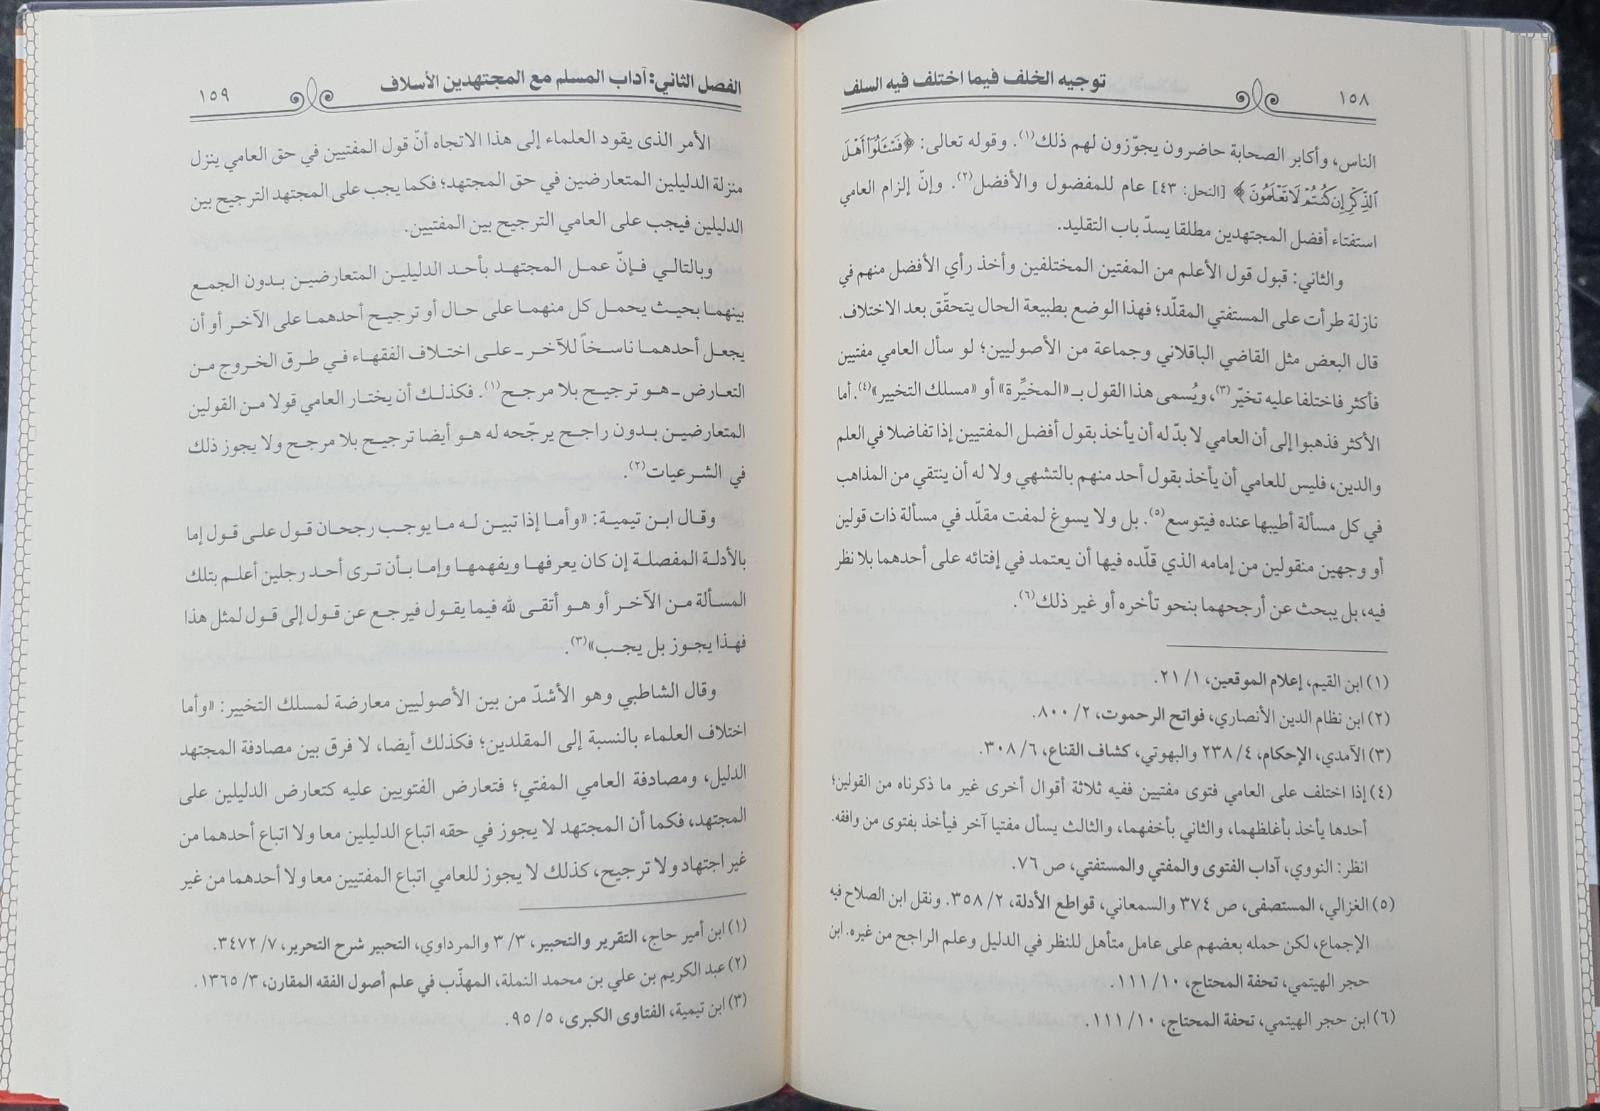 ١٥٨
توجيه الخلف فيما اختلف فيه السلف
الناس، وأكابر الصحابة حاضرون يجوّزون لهم ذلك(١). وقوله تعالى: ﴿فَسْـَٔلُوٓا۟ أَهْلَ
ٱلذِّكْرِ إِن كُنتُمْ لَا تَعْلَمُونَ﴾ [النحل: ٤٣] عام للمفضول والأفضل(٢). وإنّ إلزام العامي
استفتاء أفضل المجتهدين مطلقا يسدّ باب التقليد.
والثاني: قبول قول الأعلم من المفتين المختلفين وأخذ رأي الأفضل منهم في
نازلة طرأت على المستفتي المقلّد؛ فهذا الوضع بطبيعة الحال يتحقّق بعد الاختلاف.
قال البعض مثل القاضي الباقلاني وجماعة من الأصوليين؛ لو سأل العامي مفتيين
فأكثر فاختلفا عليه تخيّر(٣)، ويُسمى هذا القول بـ«المخيِّرة» أو «مسلك التخيير»(٤). أما
الأكثر فذهبوا إلى أن العامي لا بدّ له أن يأخذ بقول أفضل المفتيين إذا تفاضلا في العلم
والدين، فليس للعامي أن يأخذ بقول أحد منهم بالتشهي ولا له أن ينتقي من المذاهب
في كل مسألة أطيبها عنده فيتوسع(٥). بل ولا يسوغ لمفت مقلّد في مسألة ذات قولين
أو وجهين منقولين من إمامه الذي قلّده فيها أن يعتمد في إفتائه على أحدهما بلا نظر
فيه، بل يبحث عن أرجحهما بنحو تأخره أو غير ذلك(٦).
(١) ابن القيم، إعلام الموقعين، ١/ ٢١.
(٢) ابن نظام الدين الأنصاري، فواتح الرحموت، ٢/ ٨٠٠.
(٣) الآمدي، الإحكام، ٤/ ٢٣٨ والبهوتي، كشاف القناع، ٦/ ٣٠٨.
(٤) إذا اختلف على العامي فتوى مفتيين ففيه ثلاثة أقوال أخرى غير ما ذكرناه من القولين؛
أحدها يأخذ بأغلظهما، والثاني بأخفهما، والثالث يسأل مفتيا آخر فيأخذ بفتوى من وافقه.
انظر: النووي، آداب الفتوى والمفتي والمستفتي، ص ٧٦.
(٥) الغزالي، المستصفى، ص ٣٧٤ والسمعاني، قواطع الأدلة، ٢/ ٣٥٨. ونقل ابن الصلاح فيه
الإجماع، لكن حمله بعضهم على عامل متأهل للنظر في الدليل وعلم الراجح من غيره. ابن
حجر الهيتمي، تحفة المحتاج، ١٠/ ١١١.
(٦) ابن حجر الهيتمي، تحفة المحتاج، ١٠/ ١١١.
الفصل الثاني: آداب المسلم مع المجتهدين الأسلاف
١٥٩
الأمر الذى يقود العلماء إلى هذا الاتجاه أنّ قول المفتيين في حق العامي ينزل
منزلة الدليلين المتعارضين في حق المجتهد؛ فكما يجب على المجتهد الترجيح بين
الدليلين فيجب على العامي الترجيح بين المفتيين.
وبالتالي فإنّ عمل المجتهد بأحد الدليلين المتعارضين بدون الجمع
بينهما بحيث يحمل كل منهما على حال أو ترجيح أحدهما على الآخر أو أن
يجعل أحدهما ناسخاً للآخر ـ على اختلاف الفقهاء في طرق الخروج من
التعارض ـ هو ترجيح بلا مرجح(١). فكذلك أن يختار العامي قولا من القولين
المتعارضين بدون راجح يرجّحه له هو أيضا ترجيح بلا مرجح ولا يجوز ذلك
في الشرعيات(٢).
وقال ابن تيمية: «وأما إذا تبين له ما يوجب رجحان قول على قول إما
بالأدلة المفصلة إن كان يعرفها ويفهمها وإما بأن ترى أحد رجلين أعلم بتلك
المسألة من الآخر أو هو أتقى لله فيما يقول فيرجع عن قول إلى قول لمثل هذا
فهذا يجوز بل يجب»(٣).
وقال الشاطبي وهو الأشدّ من بين الأصوليين معارضة لمسلك التخيير: «وأما
اختلاف العلماء بالنسبة إلى المقلدين؛ فكذلك أيضا، لا فرق بين مصادفة المجتهد
الدليل، ومصادفة العامي المفتي؛ فتعارض الفتويين عليه كتعارض الدليلين على
المجتهد، فكما أن المجتهد لا يجوز في حقه اتباع الدليلين معا ولا اتباع أحدهما من
غير اجتهاد ولا ترجيح، كذلك لا يجوز للعامي اتباع المفتيين معا ولا أحدهما من غير
(١) ابن أمير حاج، التقرير والتحبير، ٣/ ٣ والمرداوي، التحبير شرح التحرير، ٧/ ٣٤٧٢.
(٢) عبد الكريم بن علي بن محمد النملة، المهذّب في علم أصول الفقه المقارن، ٣/ ١٣٦٥.
(٣) ابن تيمية، الفتاوى الكبرى، ٥/ ٩٥.